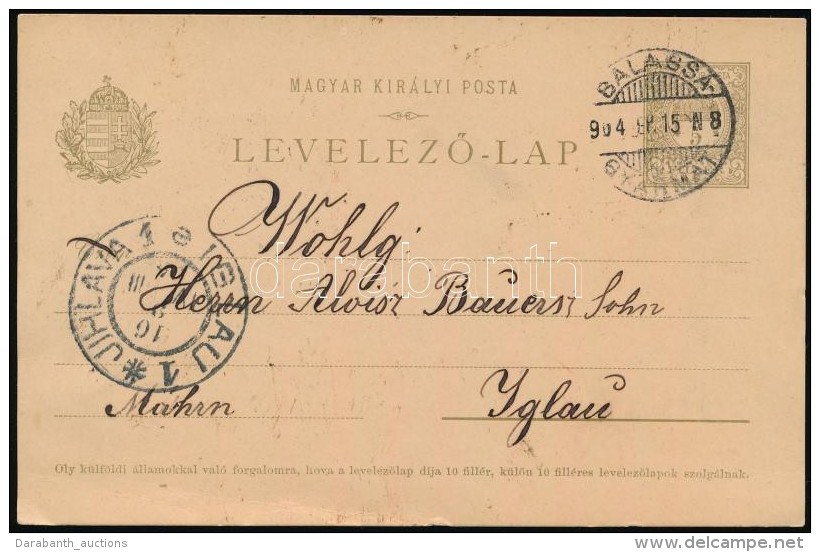 MAGYAR KIRÁLYI POSTA
LEVELEZŐ-LAP
BALASSA-
904 15 N 8
GYARMAT
5
Wohlg.
Herrn Alois Bauers Sohn
Mährn
Iglau
JIHLAVA 1 * IGLAU 1 *
16
III
Oly külföldi államokkal való forgalomra, hova a levelezőlap dija 10 fillér, külön 10 filléres levelezőlapok szolgálnak.
darabanth
Darabanth_auctions
delcampe.net